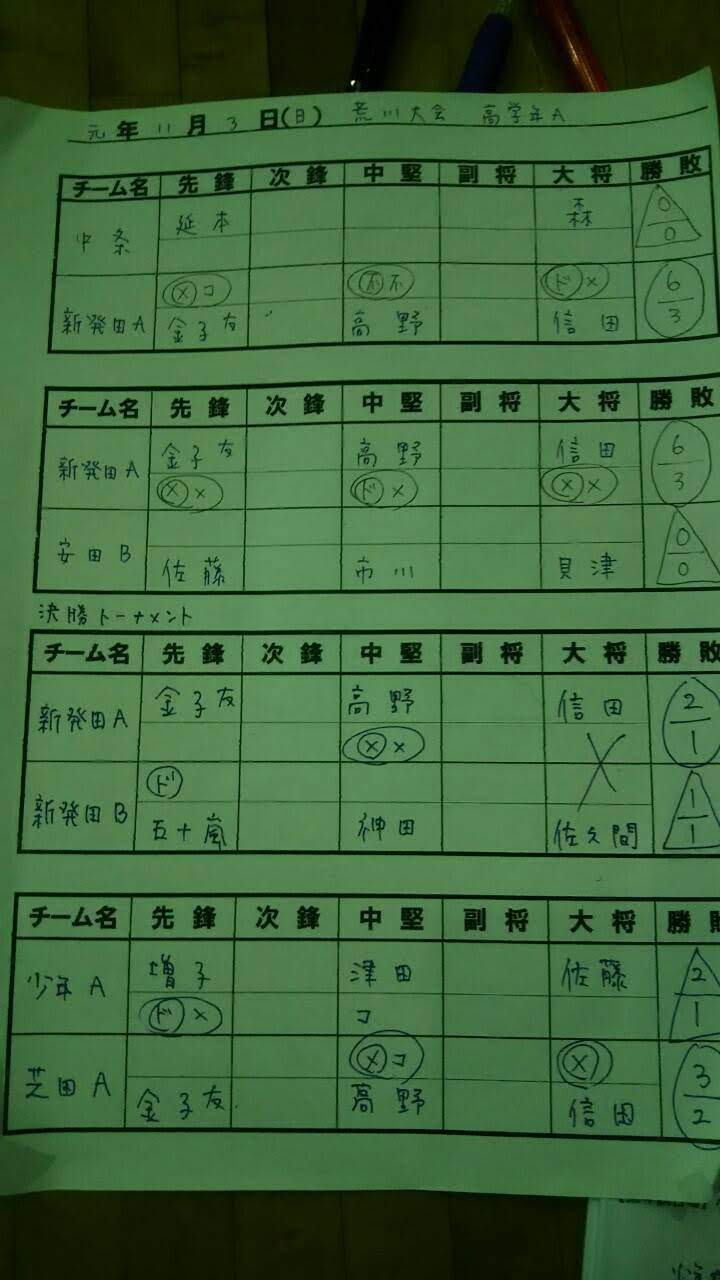 元年11月3日(日) 荒川大会 高学年A
チーム名 先鋒 次鋒 中堅 副将 大将 勝敗
中条 延本 森 0/0
新発田A メコ 不不 ドメ 6/3
金子友 高野 信田
チーム名 先鋒 次鋒 中堅 副将 大将 勝敗
新発田A 金子友 高野 信田 6/3
メメ ドメ メメ
安田B 佐藤 市川 貝津 0/0
決勝トーナメント
チーム名 先鋒 次鋒 中堅 副将 大将 勝敗
新発田A 金子友 高野 信田 2/1
メメ
ド
新発田B 五十嵐 神田 佐久間 1/1
チーム名 先鋒 次鋒 中堅 副将 大将 勝敗
少年A 増子 津田 佐藤 2/1
ドメ コ
芝田A メコ メ 3/2
金子友 高野 信田